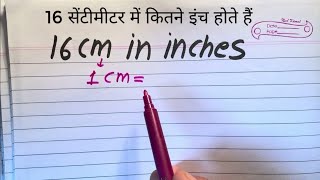 16 सेंटीमीटर में कितने इंच होते हैं
16 cm in inches
1 cm =